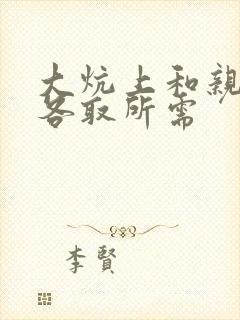 大炕上和親
各取所需
李賢